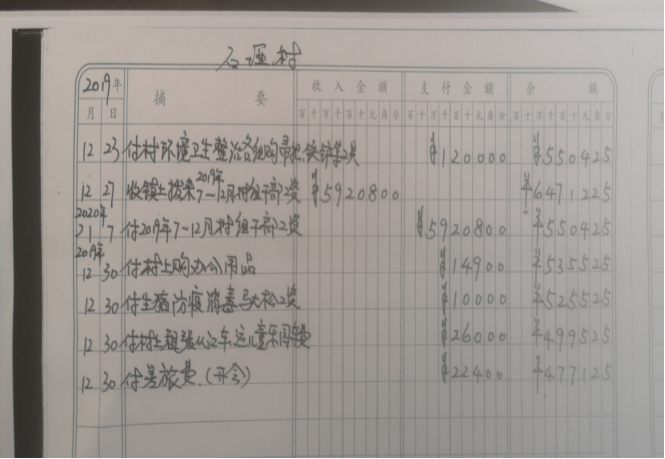 石垭村
2019年 摘要 收入金额 支付金额 余额
月 日 百十万千百十元角分 百十万千百十元角分 百十万千百十元角分
12 23 付村环境卫生整治各组购帚把、铁锌等工具 ¥120000 ¥550425
12 27 收镇上拨来2019年7-12月村组干部工资 ¥5920800 ¥6471225
2020年
1 7 付2019年7-12月村组干部工资 ¥5920800 ¥550425
2019年
12 30 付村上购办公用品 ¥14900 ¥535525
12 30 付生猪防疫消毒 工资 ¥10000 ¥525525
12 30 付村上租张 车运儿童乐园车费 ¥26000 ¥499525
12 30 付差旅费.(开会) ¥22400 ¥477125